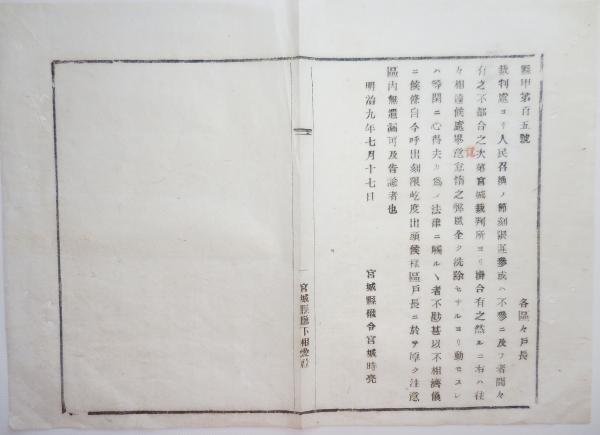 縣甲第百五號
各區々戸長
裁判處ヨリ人民召換ノ節刻限遅參或ハ不參ニ及フ者間々
有之不都合之次第宮城裁判所ヨリ掛合有之然ルニ右ハ往
々相達候處畢竟怠惰之弊風全ク洗除セサルヨリ動モスレ
ハ等閑ニ心得夫カ為メ法律ニ觸ルヽ者不尠甚以不相濟儀
ニ候條自今呼出刻限屹度出頭候様區戸長ニ於テ厚ク注意
區内無遺漏可及告諭者也
明治九年七月十七日
宮城縣權令宮城時亮
宮城縣廳下相